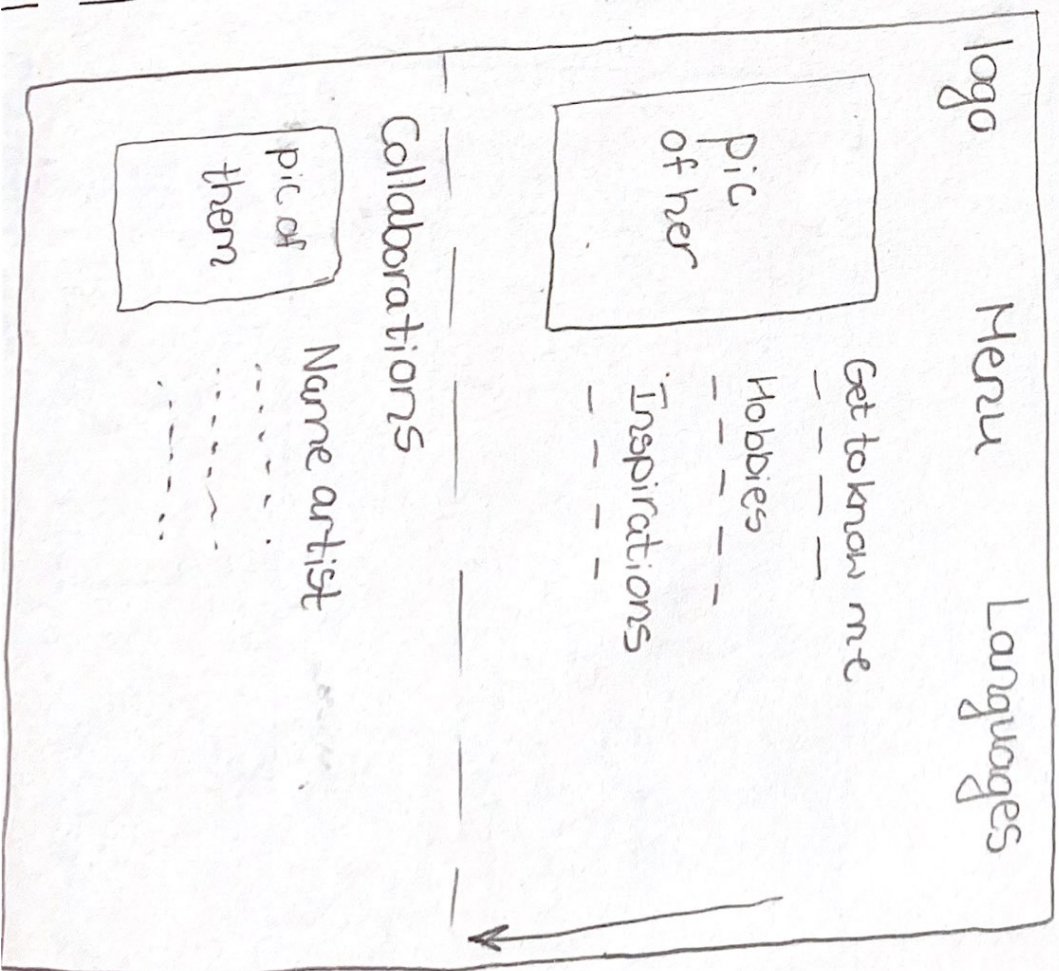 logo Menu Languages
pic
of her
Get to know me
Hobbies
Inspirations
Collaborations
pic of
them
Name artist